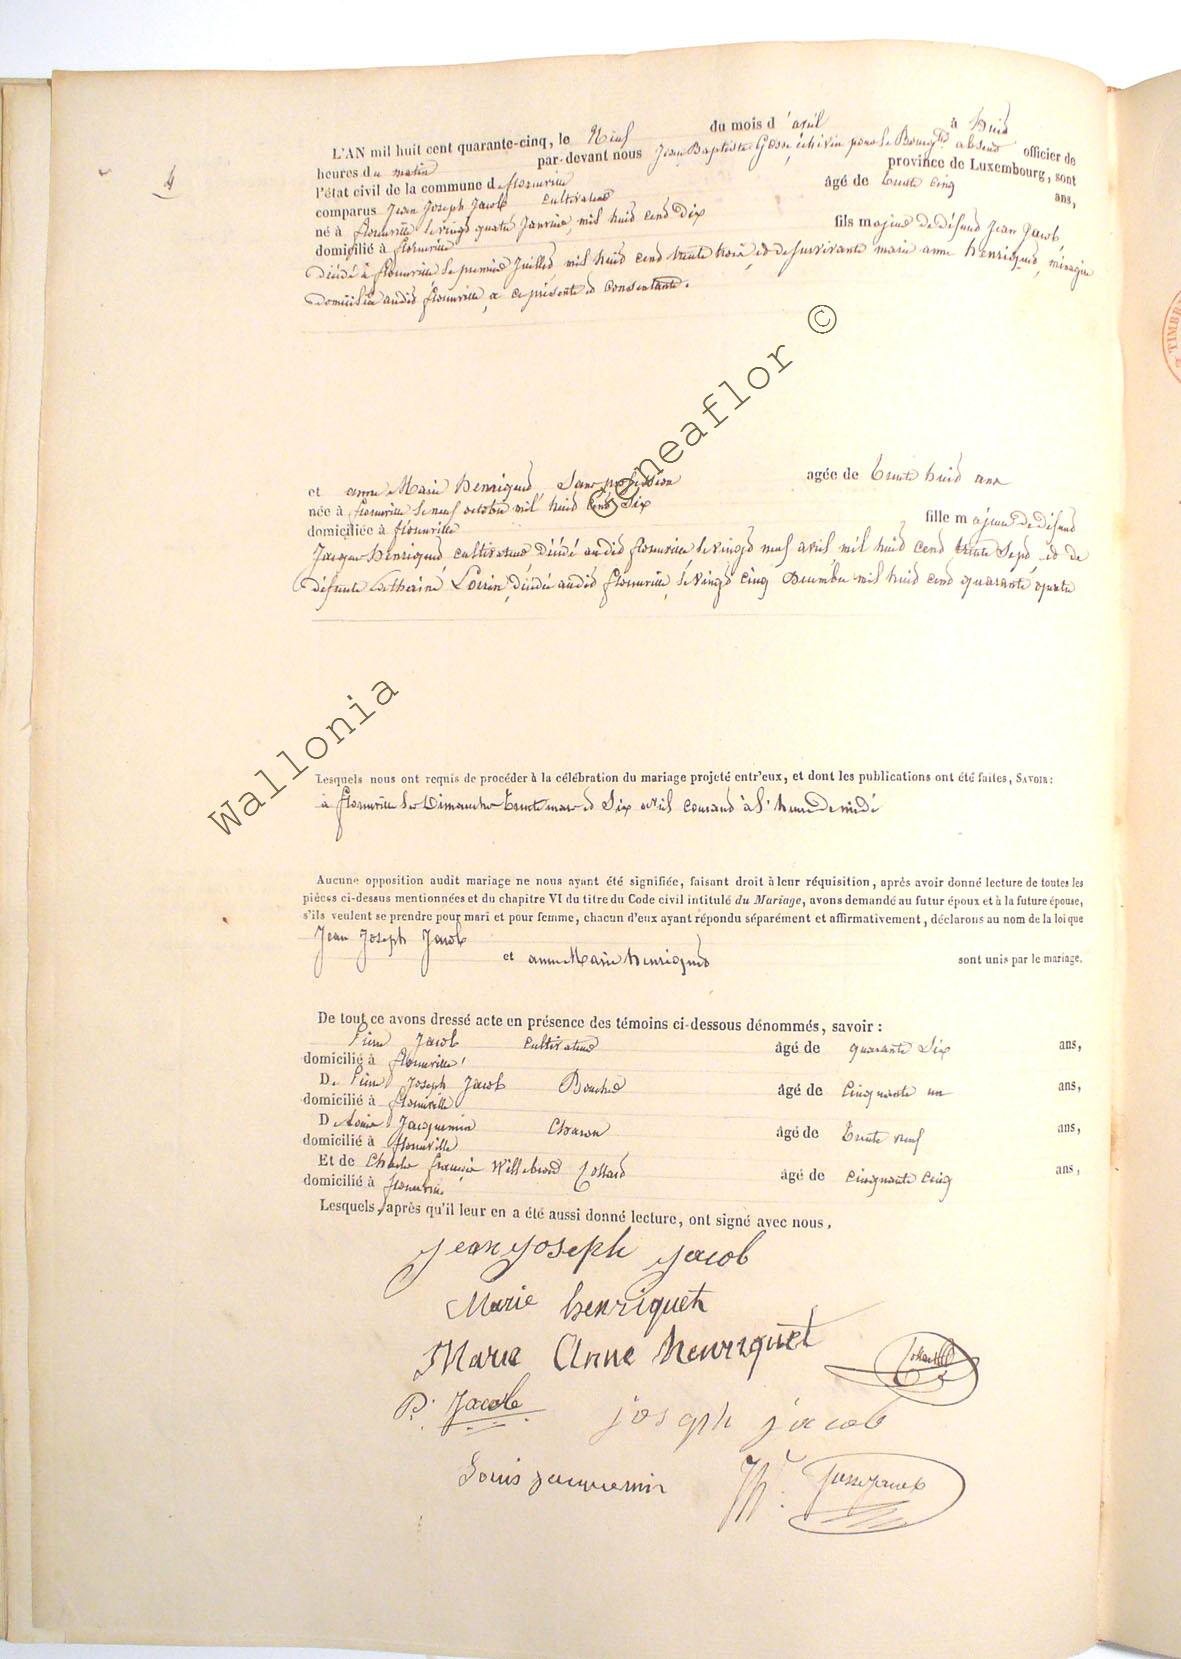 4
L'AN mil huit cent quarante-cinq, le Neuf du mois d'avril à huit
heures du matin par-devant nous Jean Baptiste Gosse, échevin pour le Bourgtre absent officier de
l'état civil de la commune de florenville province de Luxembourg, sont
comparus Jean Joseph Jacob cultivateur âgé de trente cinq ans,
né à florenville le vingt quatre Janvier, mil huit cent dix
domicilié à florenville fils majeur de défunt Jean Jacob,
décédé à florenville le premier Juillet mil huit cent trente trois et de survivante marie anne henriquet, ménagère
domiciliée audit florenville, à ce présente et consentante.
et anne Marie henriquet, Sans profession agée de trente huit ans
née à florenville le neuf octobre mil huit cent Six
domiciliée à florenville fille majeure de défunt
Jacques henriquet cultivateur décédé audit florenville le vingt neuf avril mil huit cent trente Sept et de
défunte Catherine Lorin, décédée audit florenville, le vingt cinq Décembre mil huit cent quarante quatre
Lesquels nous ont requis de procéder à la célébration du mariage projeté entr'eux, et dont les publications ont été faites, SAVOIR:
à florenville les Dimanches trente mars et Six avril courant à l'heure de midi
Aucune opposition audit mariage ne nous ayant été signifiée, faisant droit à leur réquisition, après avoir donné lecture de toutes les
pièces ci-dessus mentionnées et du chapitre VI du titre du Code civil intitulé du Mariage, avons demandé au futur époux et à la future épouse,
s'ils veulent se prendre pour mari et pour femme, chacun d'eux ayant répondu séparément et affirmativement, déclarons au nom de la loi que
Jean Joseph Jacob
et anne Marie henriquet sont unis par le mariage.
De tout ce avons dressé acte en présence des témoins ci-dessous dénommés, savoir:
Pierre Jacob cultivateur âgé de quarante Six ans,
domicilié à florenville
De Pierre Joseph Jacob Boucher âgé de cinquante un ans,
domicilié à florenville
De Louis Jacquemin Charon âgé de trente neuf ans,
domicilié à florenville
Et de Charles françois Willebrord Collard âgé de cinquante cinq ans,
domicilié à florenville
Lesquels, après qu'il leur en a été aussi donné lecture, ont signé avec nous.
jean joseph jacob
Marie henriquet
Marie Anne henriquet
Collard
P. Jacob
joseph jacob
Louis jacquemin
Wallonia Geneaflor ©
TIMBRE